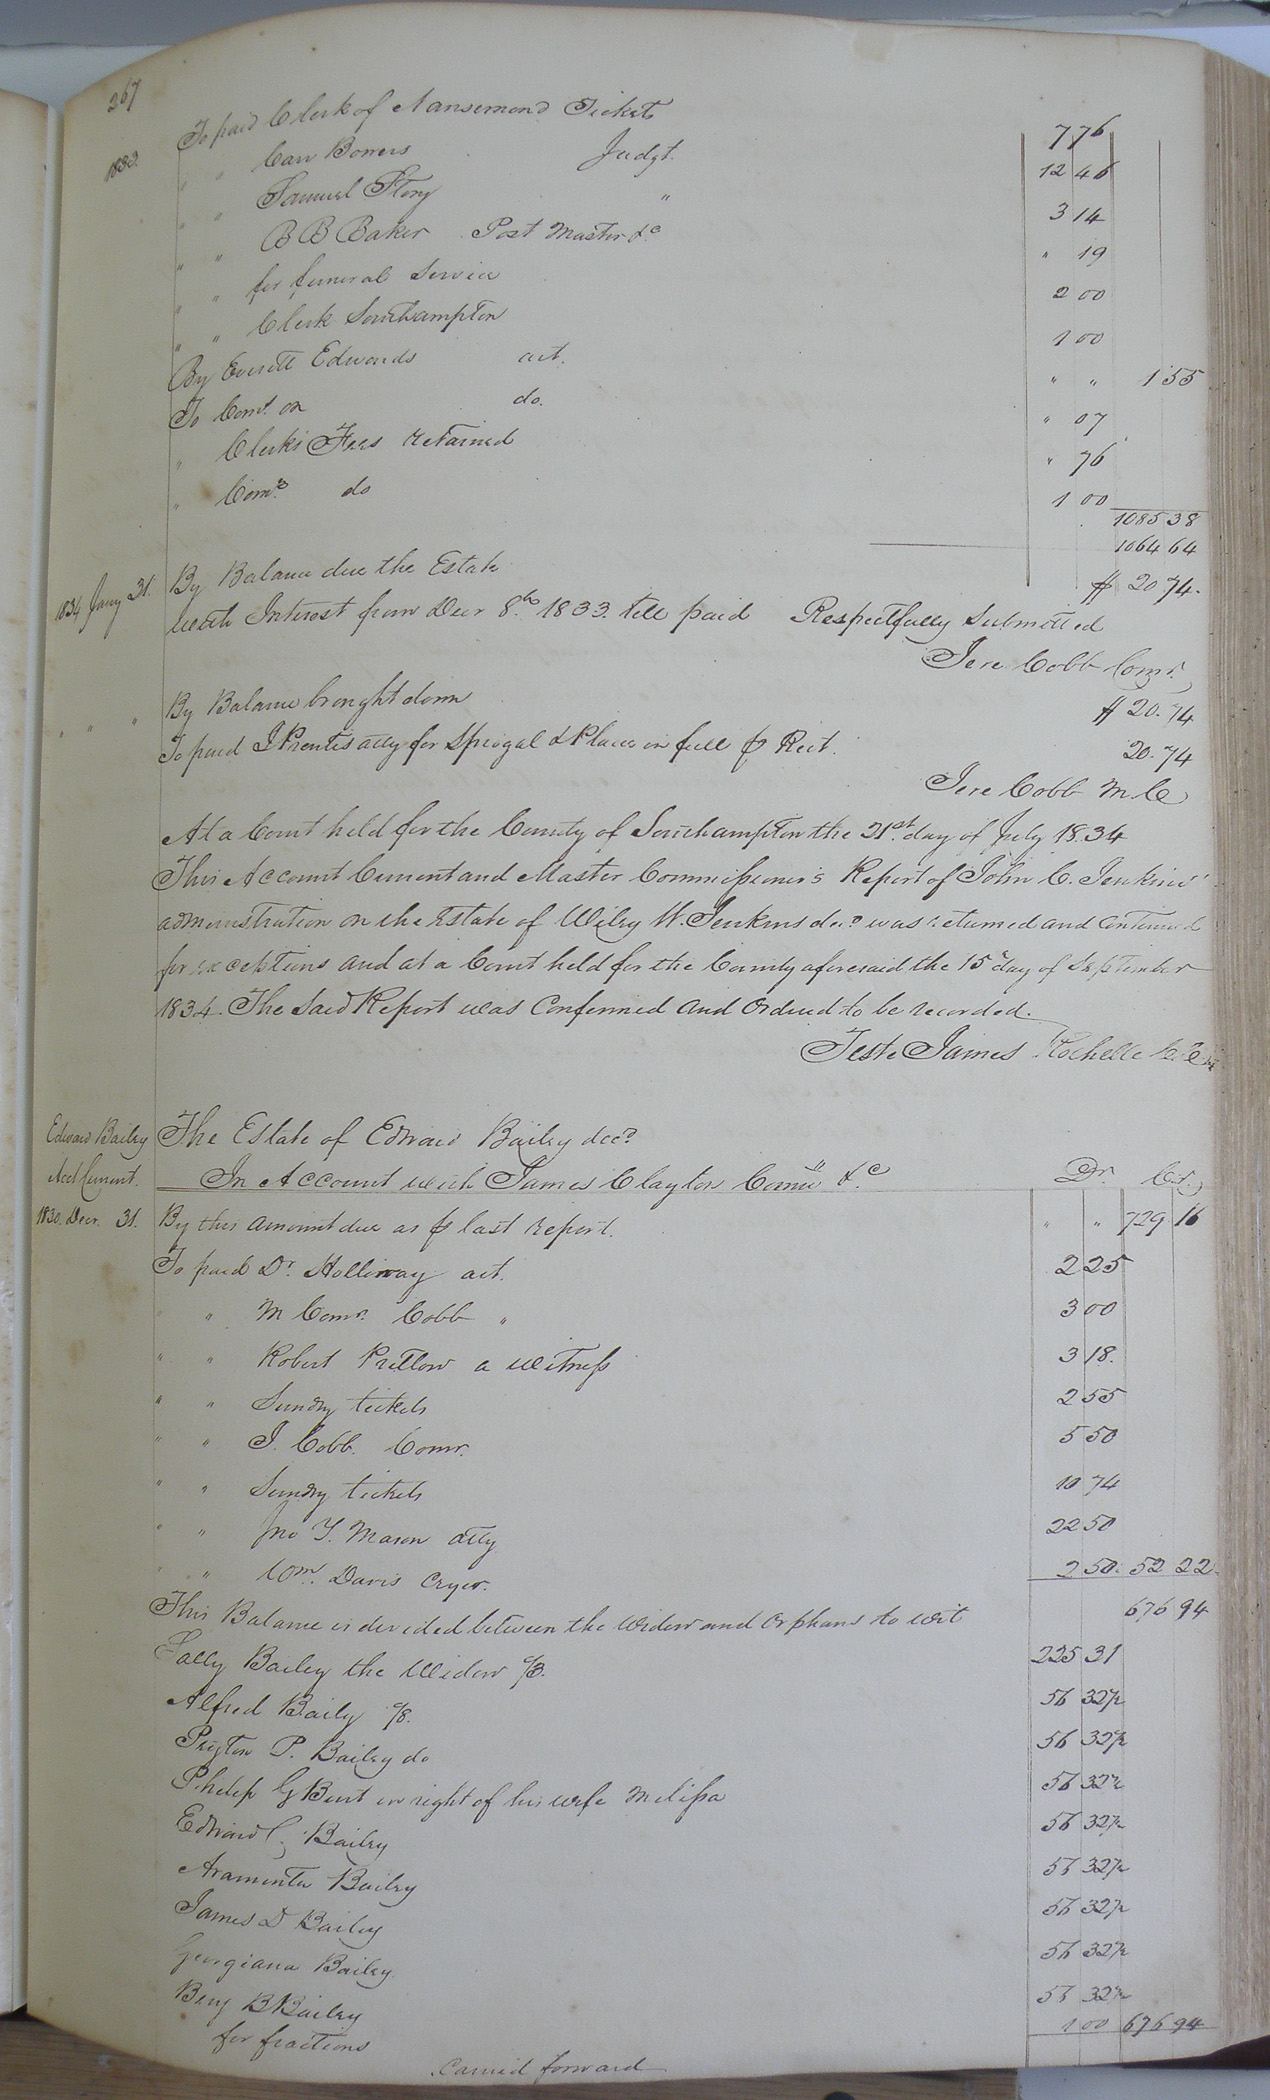 267
To paid Clerk of Nansemond Tickets 7 76
1833. " " Carr Bowers Judgt. 12 46
" " Samuel Story " 3 14
" " B B Baker Post Master &c " 19
" " for funeral Service 2 00
" " Clerk Southampton 1 00
By Everett Edwards act. " " 1 55
To Comr. on do. " 07
" Clerks Fees retained " 76
" Comrs do 1 00
1085 38
1064 64
1834 Jany 31. By Balance due the Estate $ 20 74.
With Interest from Decr 8th 1833. till paid Respectfully Submitted
Jere Cobb Comr.
" " " By Balance brought down $ 20.74
To paid J Prentis atty for Sprogal & Place in full p Rect. 20.74
Jere Cobb M. C
At a Court held for the County of Southampton the 21st. day of July 1834
This Account Current and Master Commissioner's Report of John C. Jenkins'
administration on the Estate of Wiley W. Jenkins decd was returned and continued
for exceptions and at a Court held for the County aforesaid the 15 day of September
1834. The Said Report was Confirmed and Ordered to be recorded.
Teste James Rochelle
Edward Bailey The Estate of Edward Bailey decd
Acct Current. In Account with James Clayton &c Dr. Cr.
1830. Decr. 31. By this amount due as p last report. " " 729 16
To paid Dr. Holliway act. 2 25
" M Comr. Cobb " 3 00
" " Robert Pretlow a witness 3 18.
" " Sundry tickets 2 55
" " J. Cobb. Comr. 5 50
" " Sundry tickets 10 74
" " Jno Y. Mason atty 22 50
" " Wm. Davis Cryer. 2 50. 52 22.
676 94
This Balance is devided between the Widow and Orphans to wit
Sally Bailey the Widow 1/3. 225 31
Alfred Baily 1/8. 56 32½
Peyton P. Bailey do 56 32½
Philip G Burt in right of his wife Melissa 56 32½
Edward C. Bailey 56 32½
Araminta Bailey 56 32½
James D Bailey 56 32½
Georgiana Bailey. 56 32½
Benj B Bailey 56 32½
for fractions 1 00 676 94
Carried forward